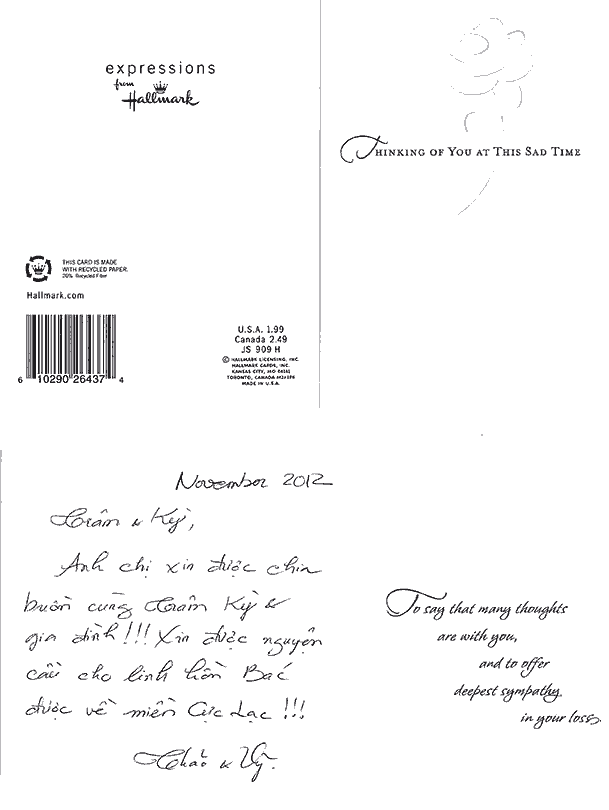 expressions
from
Hallmark
THIS CARD IS MADE
WITH RECYCLED PAPER.
20% Recycled Fiber
Hallmark.com
6 10290 26437 4
U.S.A. 1.99
Canada 2.49
JS 909 H
© HALLMARK LICENSING, INC.
HALLMARK CARDS, INC.
KANSAS CITY, MO 64141
TORONTO, CANADA M2J1P6
MADE IN U.S.A.
THINKING OF YOU AT THIS SAD TIME
November 2012
Trâm & Kỳ,
Anh chị xin được chia
buồn cùng Trâm Kỳ &
gia đình!!! Xin được nguyện
cầu cho linh hồn Bác
được về miền Cực Lạc!!!
& Vỹ.
To say that many thoughts
are with you,
and to offer
deepest sympathy
in your loss.